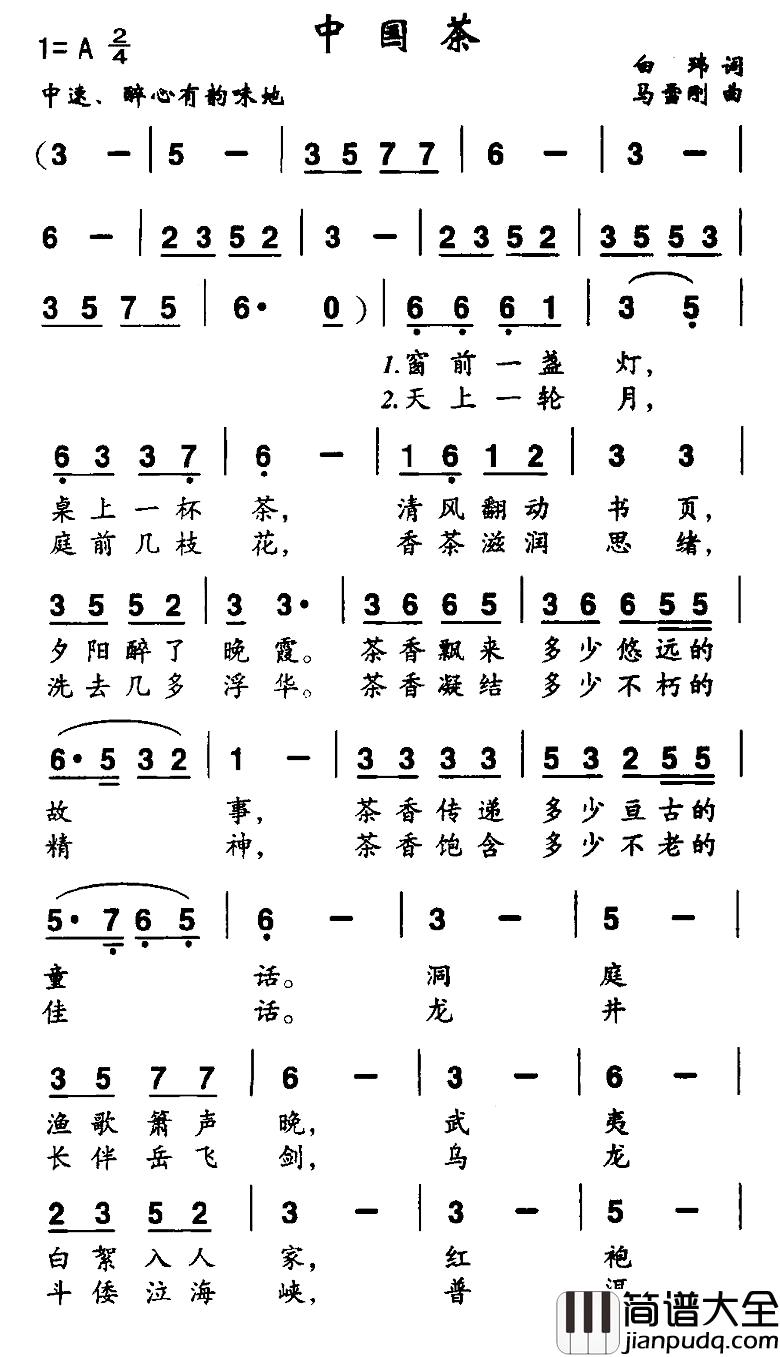 中国茶
1=A 2/4
白玮 词
中速、醉心有韵味地
马雪刚 曲
(3 - | 5 - | 3 5 7 7 | 6 - | 3 - |
6 - | 2 3 5 2 | 3 - | 2 3 5 2 | 3 5 5 3 |
3 5 7 5 | 6· 0 ) | 6 6 6 1 | 3 5 |
1.窗前一盏灯,
2.天上一轮月,
6 3 3 7 | 6 - | 1 6 1 2 | 3 3 |
桌上一杯茶, 清风翻动书页,
庭前几枝花, 香茶滋润思绪,
3 5 5 2 | 3 3· | 3 6 6 5 | 3 6 6 5 5 |
夕阳醉了晚霞。茶香飘来多少悠远的
洗去几多浮华。茶香凝结多少不朽的
6· 5 3 2 | 1 - | 3 3 3 3 | 5 3 2 5 5 |
故事, 茶香传递多少亘古的
精神, 茶香饱含多少不老的
5· 7 6 5 | 6 - | 3 - | 5 - |
童话。洞庭
佳话。龙井
3 5 7 7 | 6 - | 3 - | 6 - |
渔歌箫声晚, 武夷
长伴岳飞剑, 乌龙
2 3 5 2 | 3 - | 3 - | 5 - |
白絮入人家, 红袍
斗倭泣海峡, 普
简谱大全
jianpudq.com